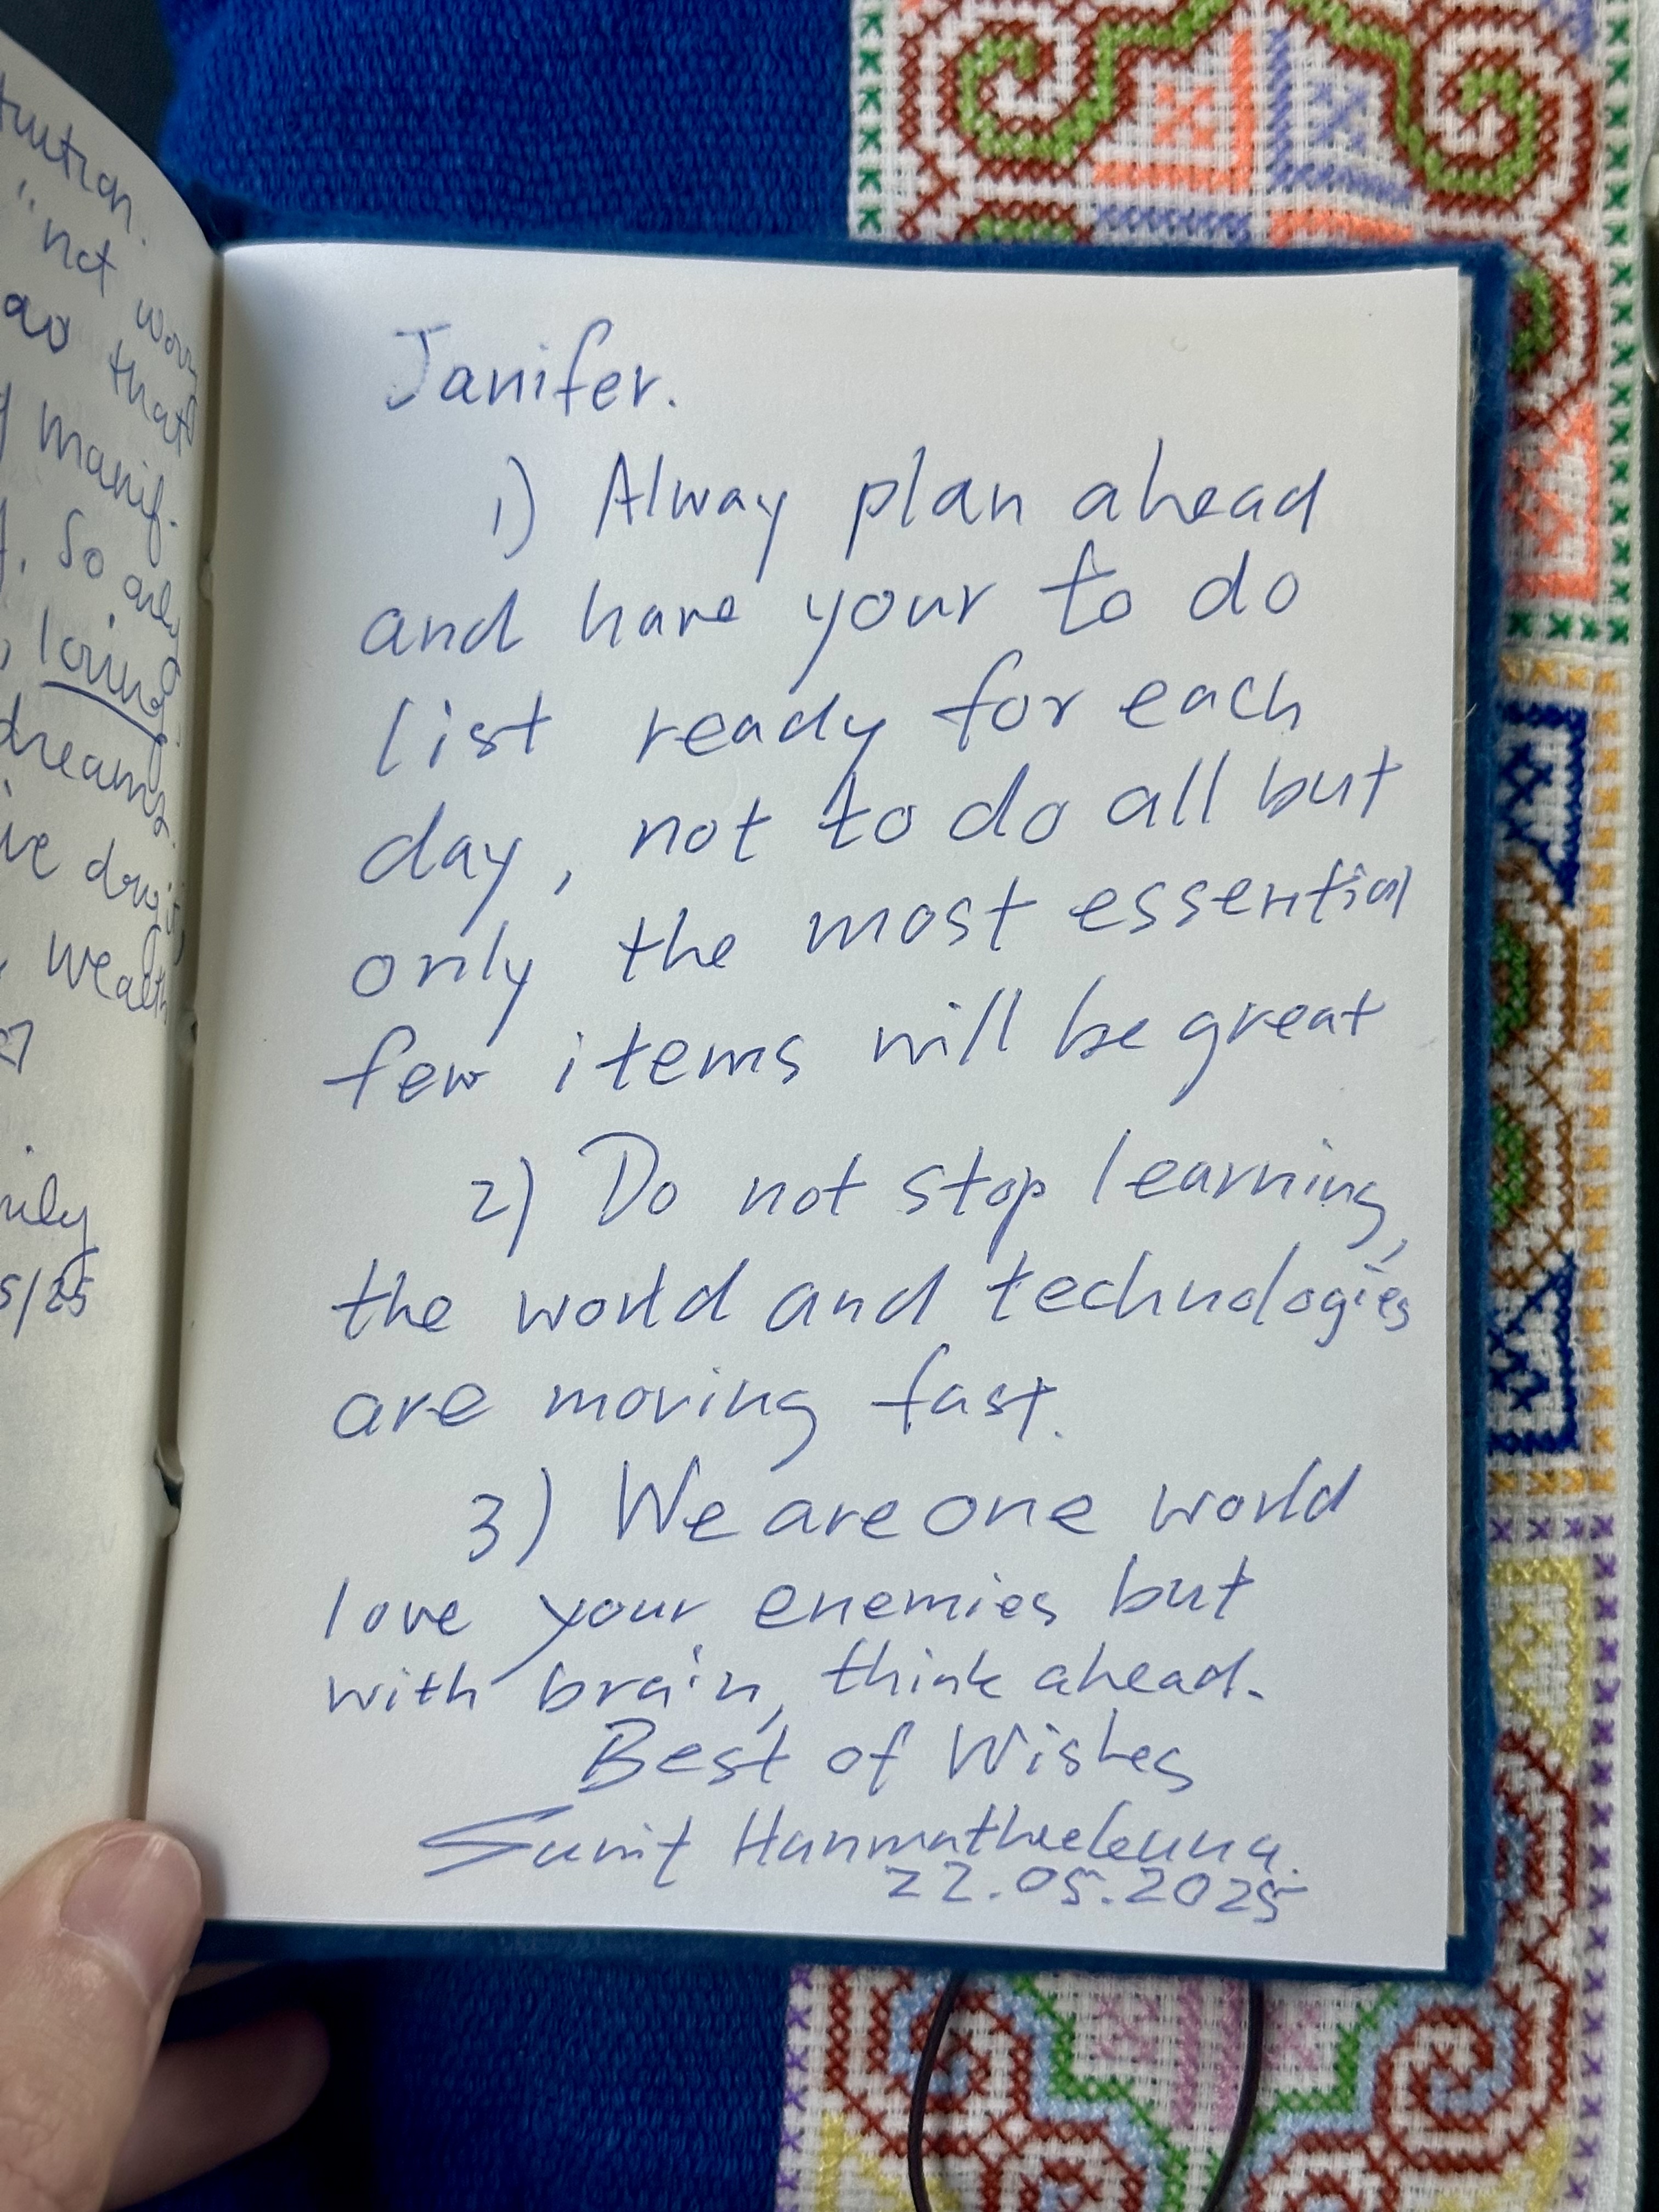 not
that
manif.
So
loving
dreams
wealth
Janifer.
1) Alway plan ahead
and have your to do
list ready for each
day, not to do all but
only the most essential
few items will be great
2) Do not stop learning,
the world and technologies
are moving fast.
3) We are one world
love your enemies but
with brain, think ahead.
Best of Wishes
22.05.2025